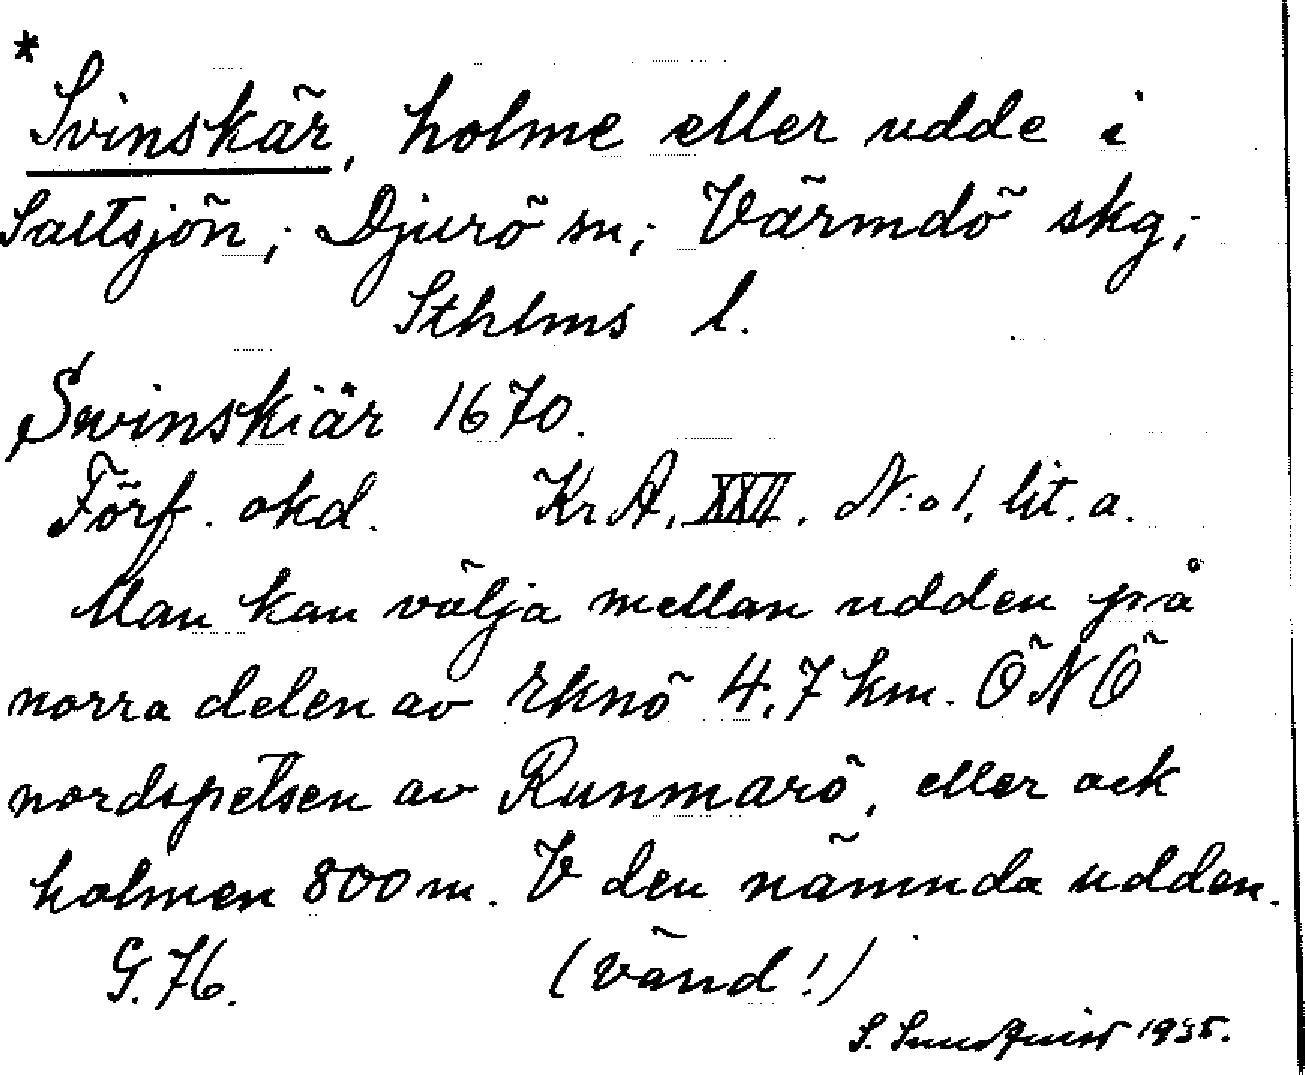 *
Svinskär, holme eller udde i
Saltsjön; Djurö sn; Värmdö skg;
Sthlms l.
Swinskiär 1670.
Förf. okd. Kr A, XXII. N:o 1. lit. a.
Man kan välja mellan udden på
norra delen av Eknö 4,7 km. ÖNÖ
nordspetsen av Runmarö, eller ock
holmen 800 m. V den nämnda udden.
G. 76. (vänd!)
S. Sundquist 1935.